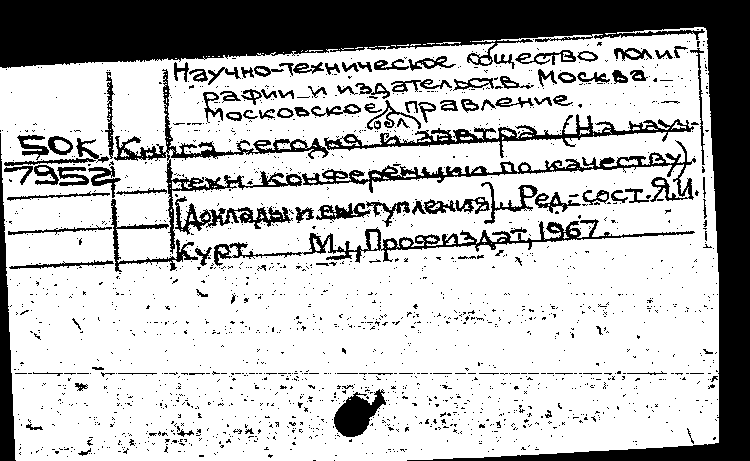 Научно-техническое общество полиг-
рафии и издательств. Москва.
Московское обл. правление.
50К Книга сегодня и завтра. (На науч.-
7952 техн. конференции по качеству).
[Доклады и выступления]. Ред.-сост. Я.И.
Курт. М., Профиздат, 1967.